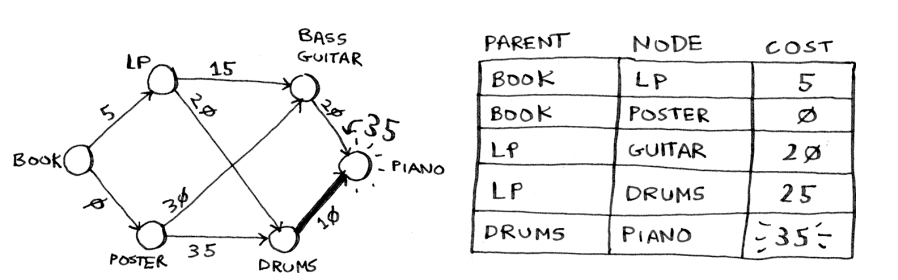 BASS
GUITAR
LP
15
5
2Ø
2Ø
35
BOOK
PIANO
Ø
3Ø
1Ø
35
POSTER
DRUMS
PARENT NODE COST
BOOK LP 5
BOOK POSTER Ø
LP GUITAR 2Ø
LP DRUMS 25
DRUMS PIANO 35